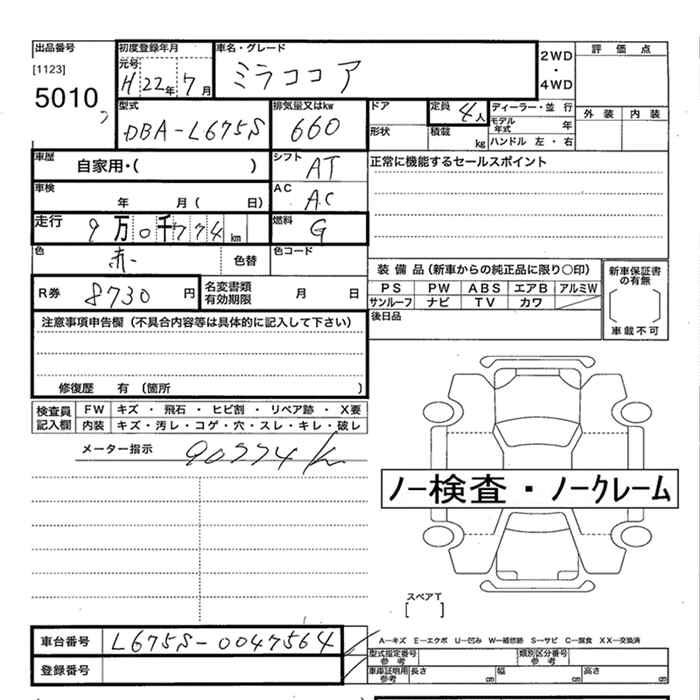 出品番号
[1123]
5010
初度登録年月
元号
H 22年 7月
車名・グレード
ミラココア
2WD
・
4WD
評価点
外装 内装
型式
DBA-L675S
排気量又はkw
660
ドア
形状
定員
4人
積載
kg
ディーラー・並行
モデル年式
年
ハンドル 左・右
車歴
自家用・( )
シフト
AT
正常に機能するセールスポイント
車検
年 月( 日)
AC
A.C
走行
9万0千774km
燃料
G
色
赤-
色替
色コード
R券 8730 円
名変書類
有効期限
月 日
装備品(新車からの純正品に限り〇印)
PS PW ABS エアB アルミW
サンルーフ ナビ TV カワ
新車保証書
の有無
車載不可
後日品
注意事項申告欄(不具合内容等は具体的に記入して下さい)
修復歴 有 (箇所 )
検査員
記入欄
FW キズ・飛石・ヒビ割・リペア跡・X要
内装 キズ・汚レ・コゲ・穴・スレ・キレ・破レ
メーター指示 90774km
ノー検査・ノークレーム
スペアT
[ ]
車台番号 L675S-0047564
登録番号
A―キズ E―エクボ U―凹み W―補修跡 S―サビ C―腐食 XX―交換済
型式指定番号
参考
類別区分番号
参考
車庫証明用
参考
長さ
cm
幅
cm
高さ
cm